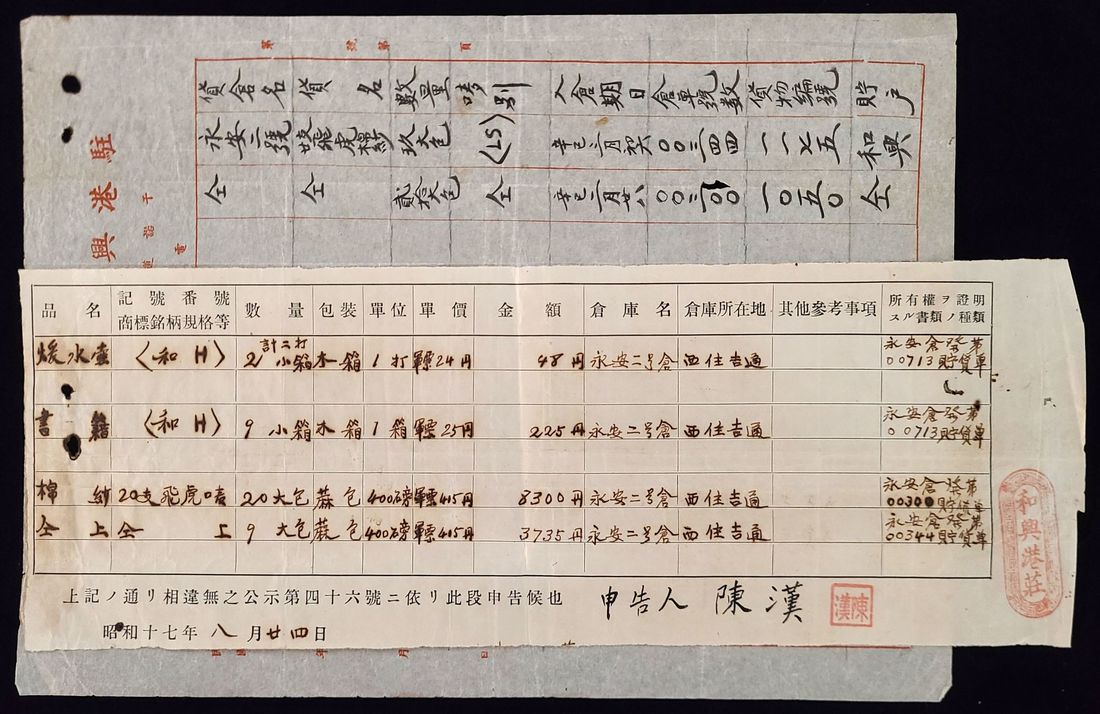 第 號 第 頁
貨倉名 貨名 數量 嘜別 入倉期日 倉單號数 貨物編號 貯户
永安二號 廿支飛虎棉紗 玖大包 〈LS〉 辛巳 月 〇〇三四四 一一七五 和興
仝 仝 貳拾大包 仝 辛巳二月廿八 〇〇三〇〇 一〇五〇 仝
駐港興
電話
品名 記號番號 商標銘柄規格等 數量 包裝 單位 單價 金額 倉庫名 倉庫所在地 其他參考事項 所有權ヲ證明スル書類ノ種類
計二打
煖水壺 〈和 H〉 2小箱 木箱 1打 軍票24円 48円 永安二号倉 西住吉通 永安倉發第00713貯貨單
書籍 〈和 H〉 9小箱 木箱 1箱 軍票25円 225円 永安二号倉 西住吉通 永安倉發第00713貯貨單
棉紗 20支飛虎唛 20大包 蔴包 400磅 軍票415円 8300円 永安二号倉 西住吉通 永安倉發第00300貯貨單
仝上 仝上 9大包 蔴包 400磅 軍票415円 3735円 永安二号倉 西住吉通 永安倉發第00344貯貨單
上記ノ通リ相違無之公示第四十六號ニ依リ此段申告候也
申告人 陳漢
陳漢
昭和十七年八月廿四日
和興港莊
年 月 日